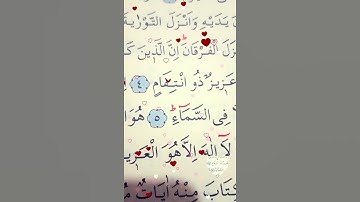 يَدَيْهِ وَاَنْزَلَ التَّوْرٰيةَ
زَلَ الْفُرْقَانَ اِنَّ الَّذٖينَ كَ
عَزٖيزٌ ذُو انْتِقَامٍ ﴿٤﴾
فِى السَّمَٓاءِ ﴿٥﴾ هُوَ ا
لَٓا اِلٰهَ اِلَّا هُوَ الْعَزٖي
كِتَابَ مِنْهُ اٰيَاتٌ مُ